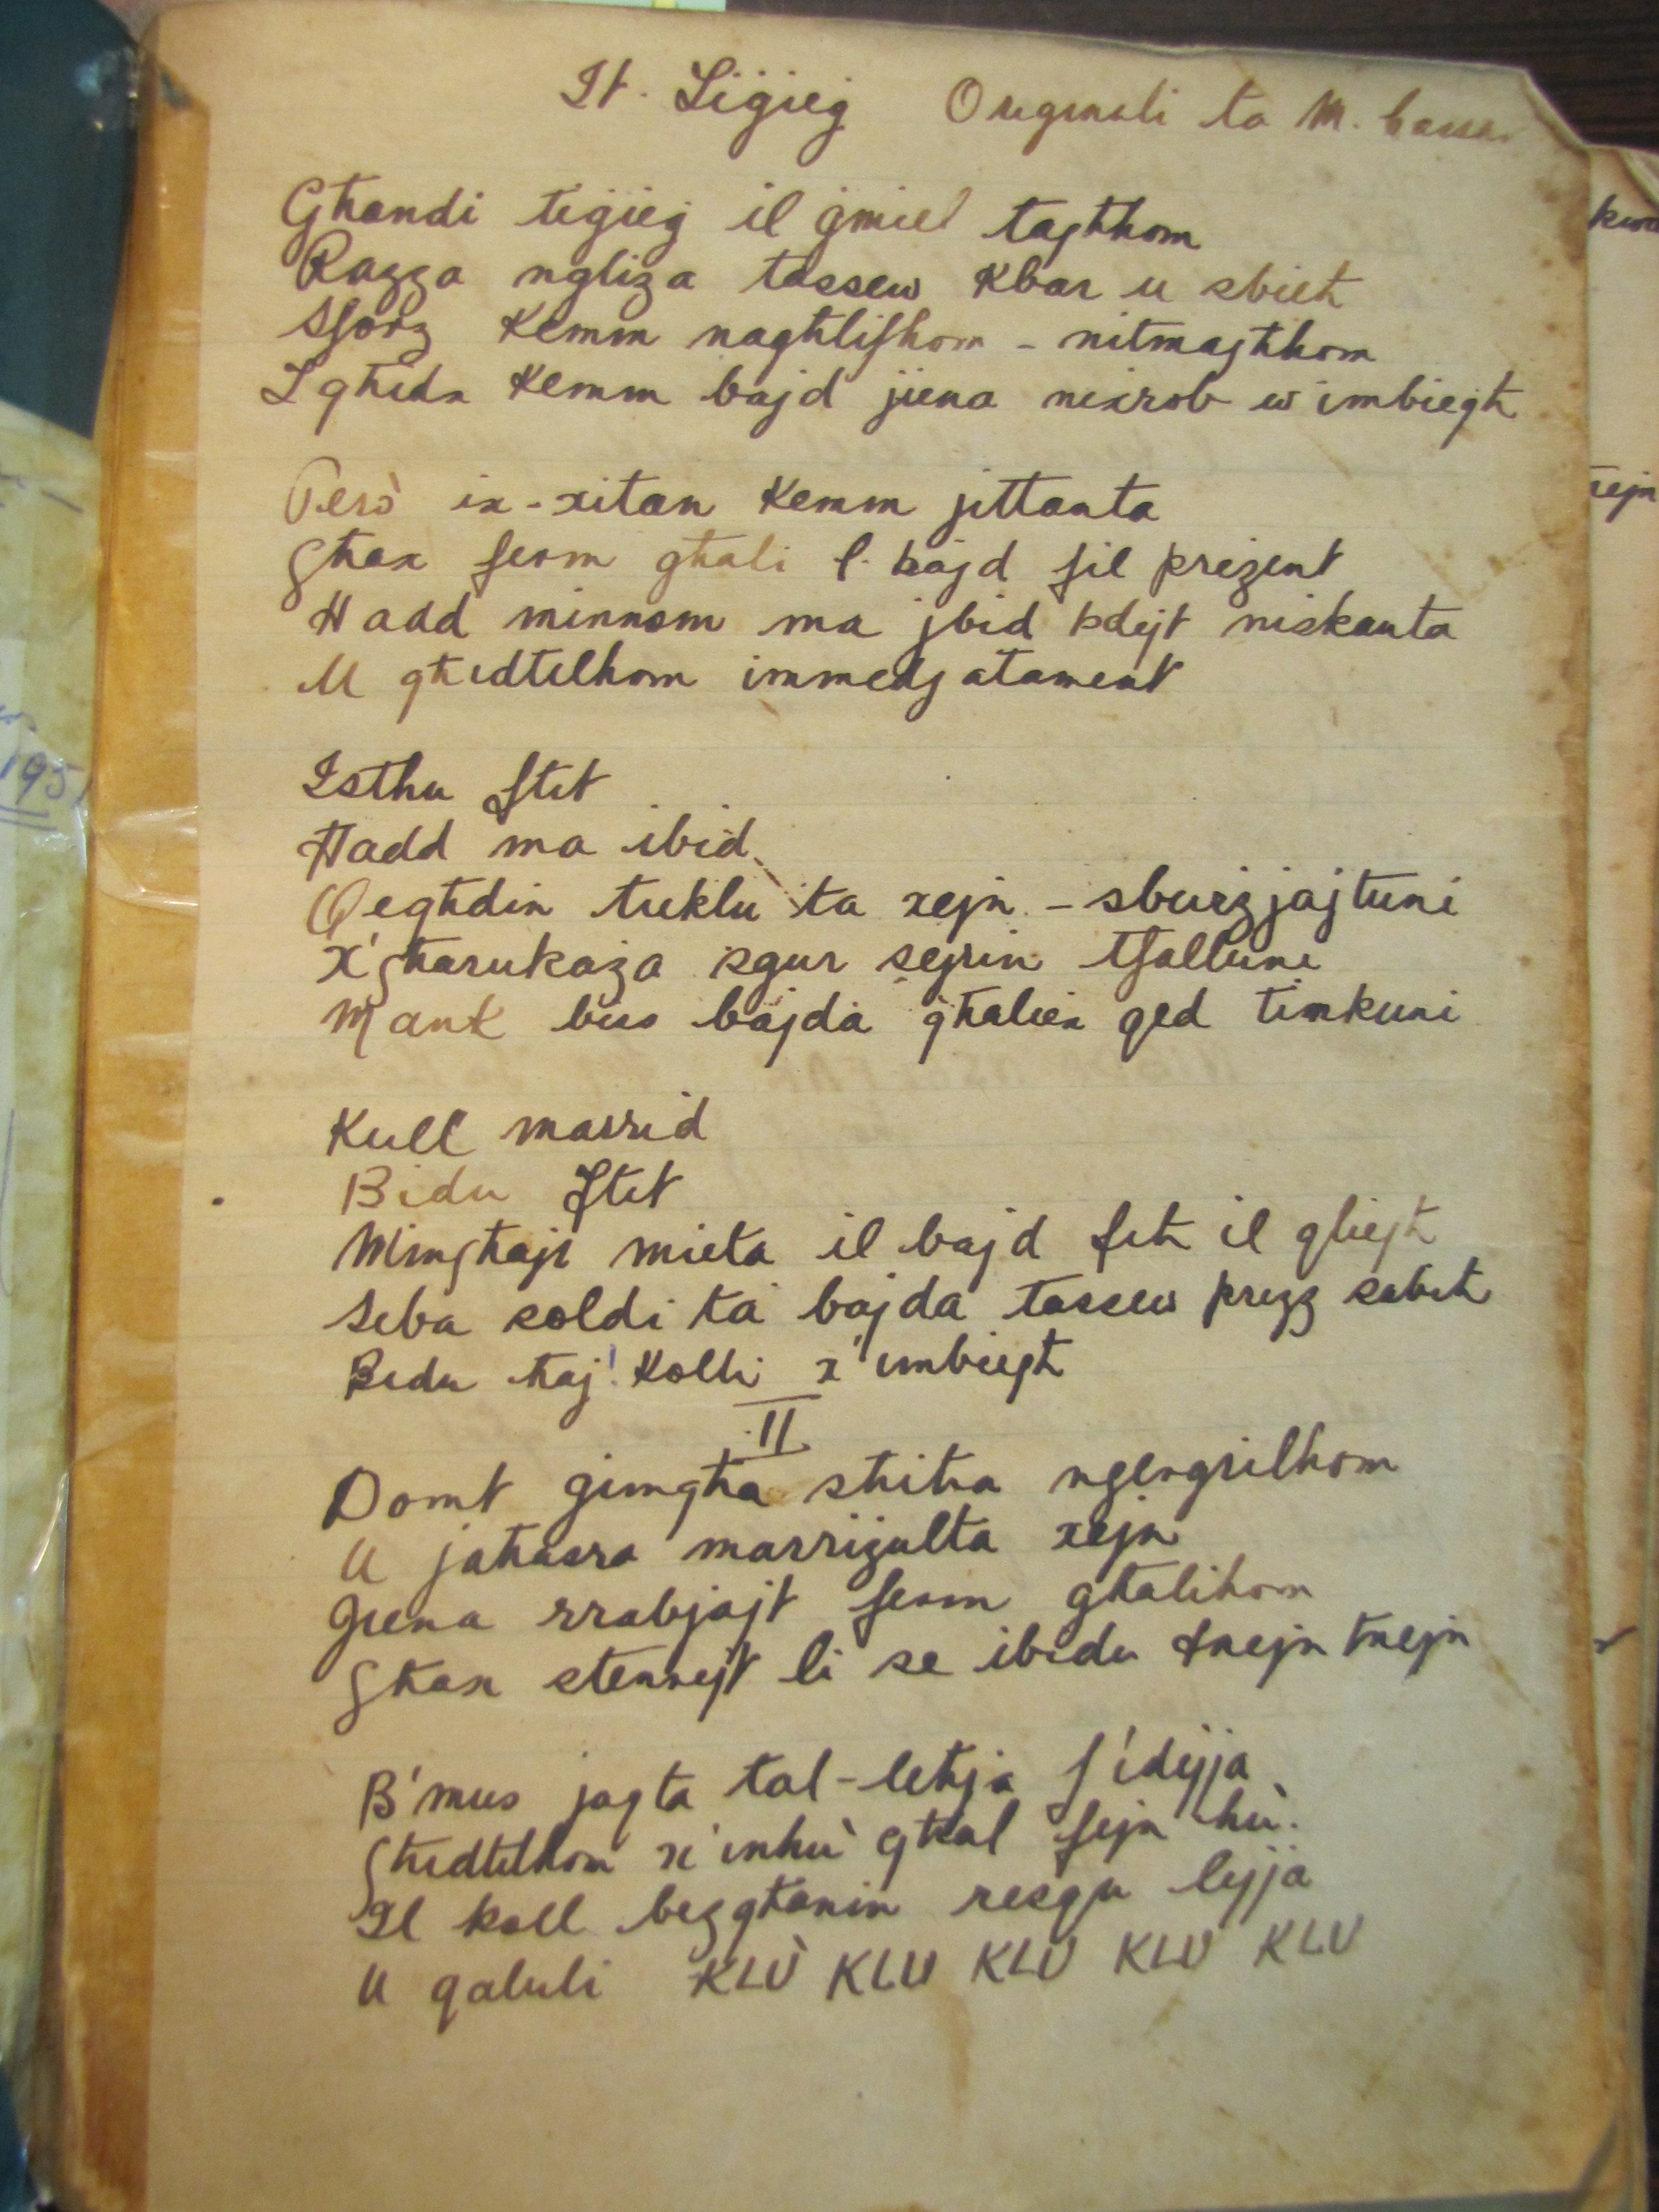 It-Tiġieġ Originali ta M. Cassar
Għandi tiġieġ il ġmiel tagħhom
Razza ngliża tassew kbar u sbieħ
Sforz kemm nagħlifhom - nitmagħhom
Tgħidx kemm bajd jiena nixrob w imbiegħ
Però ix-xitan kemm jittanta
Għax ferm għali l-bajd fil preżent
Ħadd minnom ma jbid bdejt niskanta
U għedtilhom immedjatament
Istħu ftit
Ħadd ma ibid
Qegħdin tieklu ta xejn - sburżjajtuni
X'għarukaża żgur sejrin tfalluni
Mank biss bajda għaliex qed timkuni
Kull marrid
Bidu ftit
Mingħajr mieta il bajd fih il qliegħ
Seba soldi ta bajda tassew prezz sabiħ
Bidu ħaj! Kolli x'imbiegħ
II
Domt ġimgħa sħiħa nġengħilhom
U jaħasra marriżulta xejn
Jiena rrabjajt ferm għalihom
Għax stennejt li se ibidu tnejn tnejn
B'mus jaqta tal-leħja f'idejja
Għedtilhom x'inhù għal fejn hù.
Il koll beżgħanin resqu lejja
U qaluli KLÙ KLU KLU KLU KLU
kwa
rejn
195